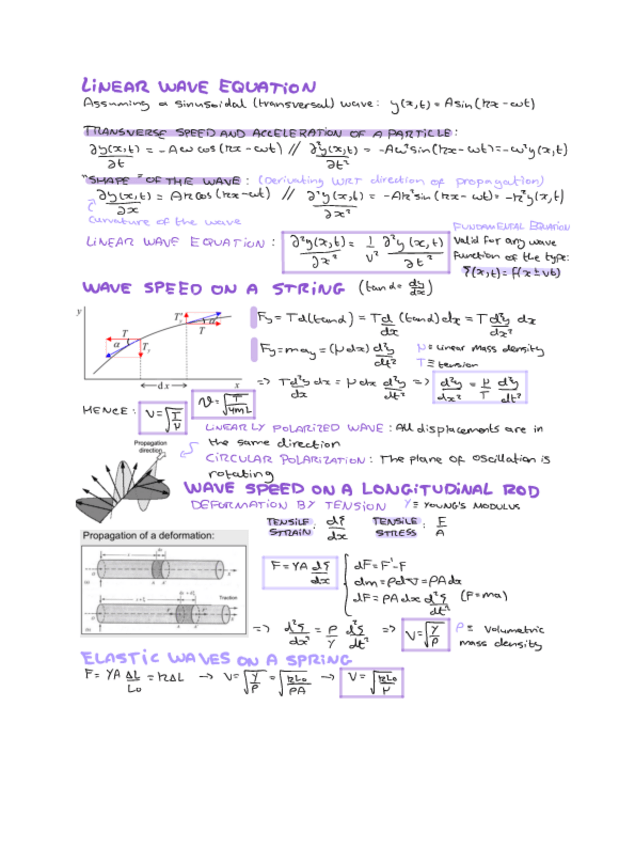 LINEAR WAVE EQUATION
Assuming a sinusoidal (transversal) wave: y(x,t) = A sin(kx - ωt)
TRANSVERSE SPEED AND ACCELERATION OF A PARTICLE:
∂y(x,t)/∂t = -Aω cos(kx - ωt) // ∂²y(x,t)/∂t² = -Aω² sin(kx - ωt) = -ω² y(x,t)
"SHAPE" OF THE WAVE: (Derivating WRT direction of propagation)
∂y(x,t)/∂x = Ak cos(kx - ωt) // ∂²y(x,t)/∂x² = -Ak² sin(kx - ωt) = -k² y(x,t)
Curvature of the wave
FUNDAMENTAL EQUATION
LINEAR WAVE EQUATION: ∂²y(x,t)/∂x² = 1/v² ∂²y(x,t)/∂t²
Valid for any wave
function of the type:
ξ(x,t) = f(x ± vt)
WAVE SPEED ON A STRING (tan α = dy/dx)
y
T'
α
T
T
α
T_y
dx
x
F_y = T d(tan α) = T d/dx (tan α) dx = T d²y/dx² dx
F_y = m a_y = (μ dx) d²y/dt²
μ ≡ Linear mass density
T ≡ tension
=> T d²y/dx dx = μ dx d²y/dt² => d²y/dx² = μ/T d²y/dt²
HENCE: V = √(T/μ)
LINEARLY POLARIZED WAVE: All displacements are in
the same direction
CIRCULAR POLARIZATION: The plane of oscillation is
rotating
Propagation
direction
WAVE SPEED ON A LONGITUDINAL ROD
DEFORMATION BY TENSION Y ≡ YOUNG'S MODULUS
TENSILE STRAIN: dξ/dx TENSILE STRESS: F/A
Propagation of a deformation:
(a)
Traction
(b)
F = YA dξ/dx
dF = F' - F
dm = ρdV = ρA dx
dF = ρA dx d²ξ/dt² (F = ma)
=> d²ξ/dx² = ρ/Y d²ξ/dt² => V = √(Y/ρ)
ρ ≡ Volumetric
mass density
ELASTIC WAVES ON A SPRING
F = YA ΔL/L₀ = kΔL → V = √(Y/ρ) = √(kL₀/ρA) → V = √(kL₀/μ)